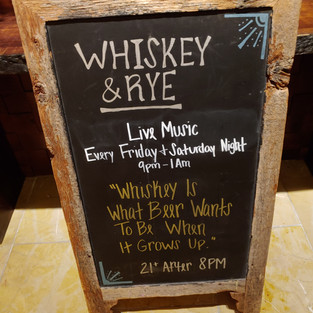 WHISKEY
& RYE
Live Music
Every Friday + Saturday Night
9pm - 1am
"Whiskey Is
What Beer Wants
To Be When
It Grows Up."
21+ After 8PM